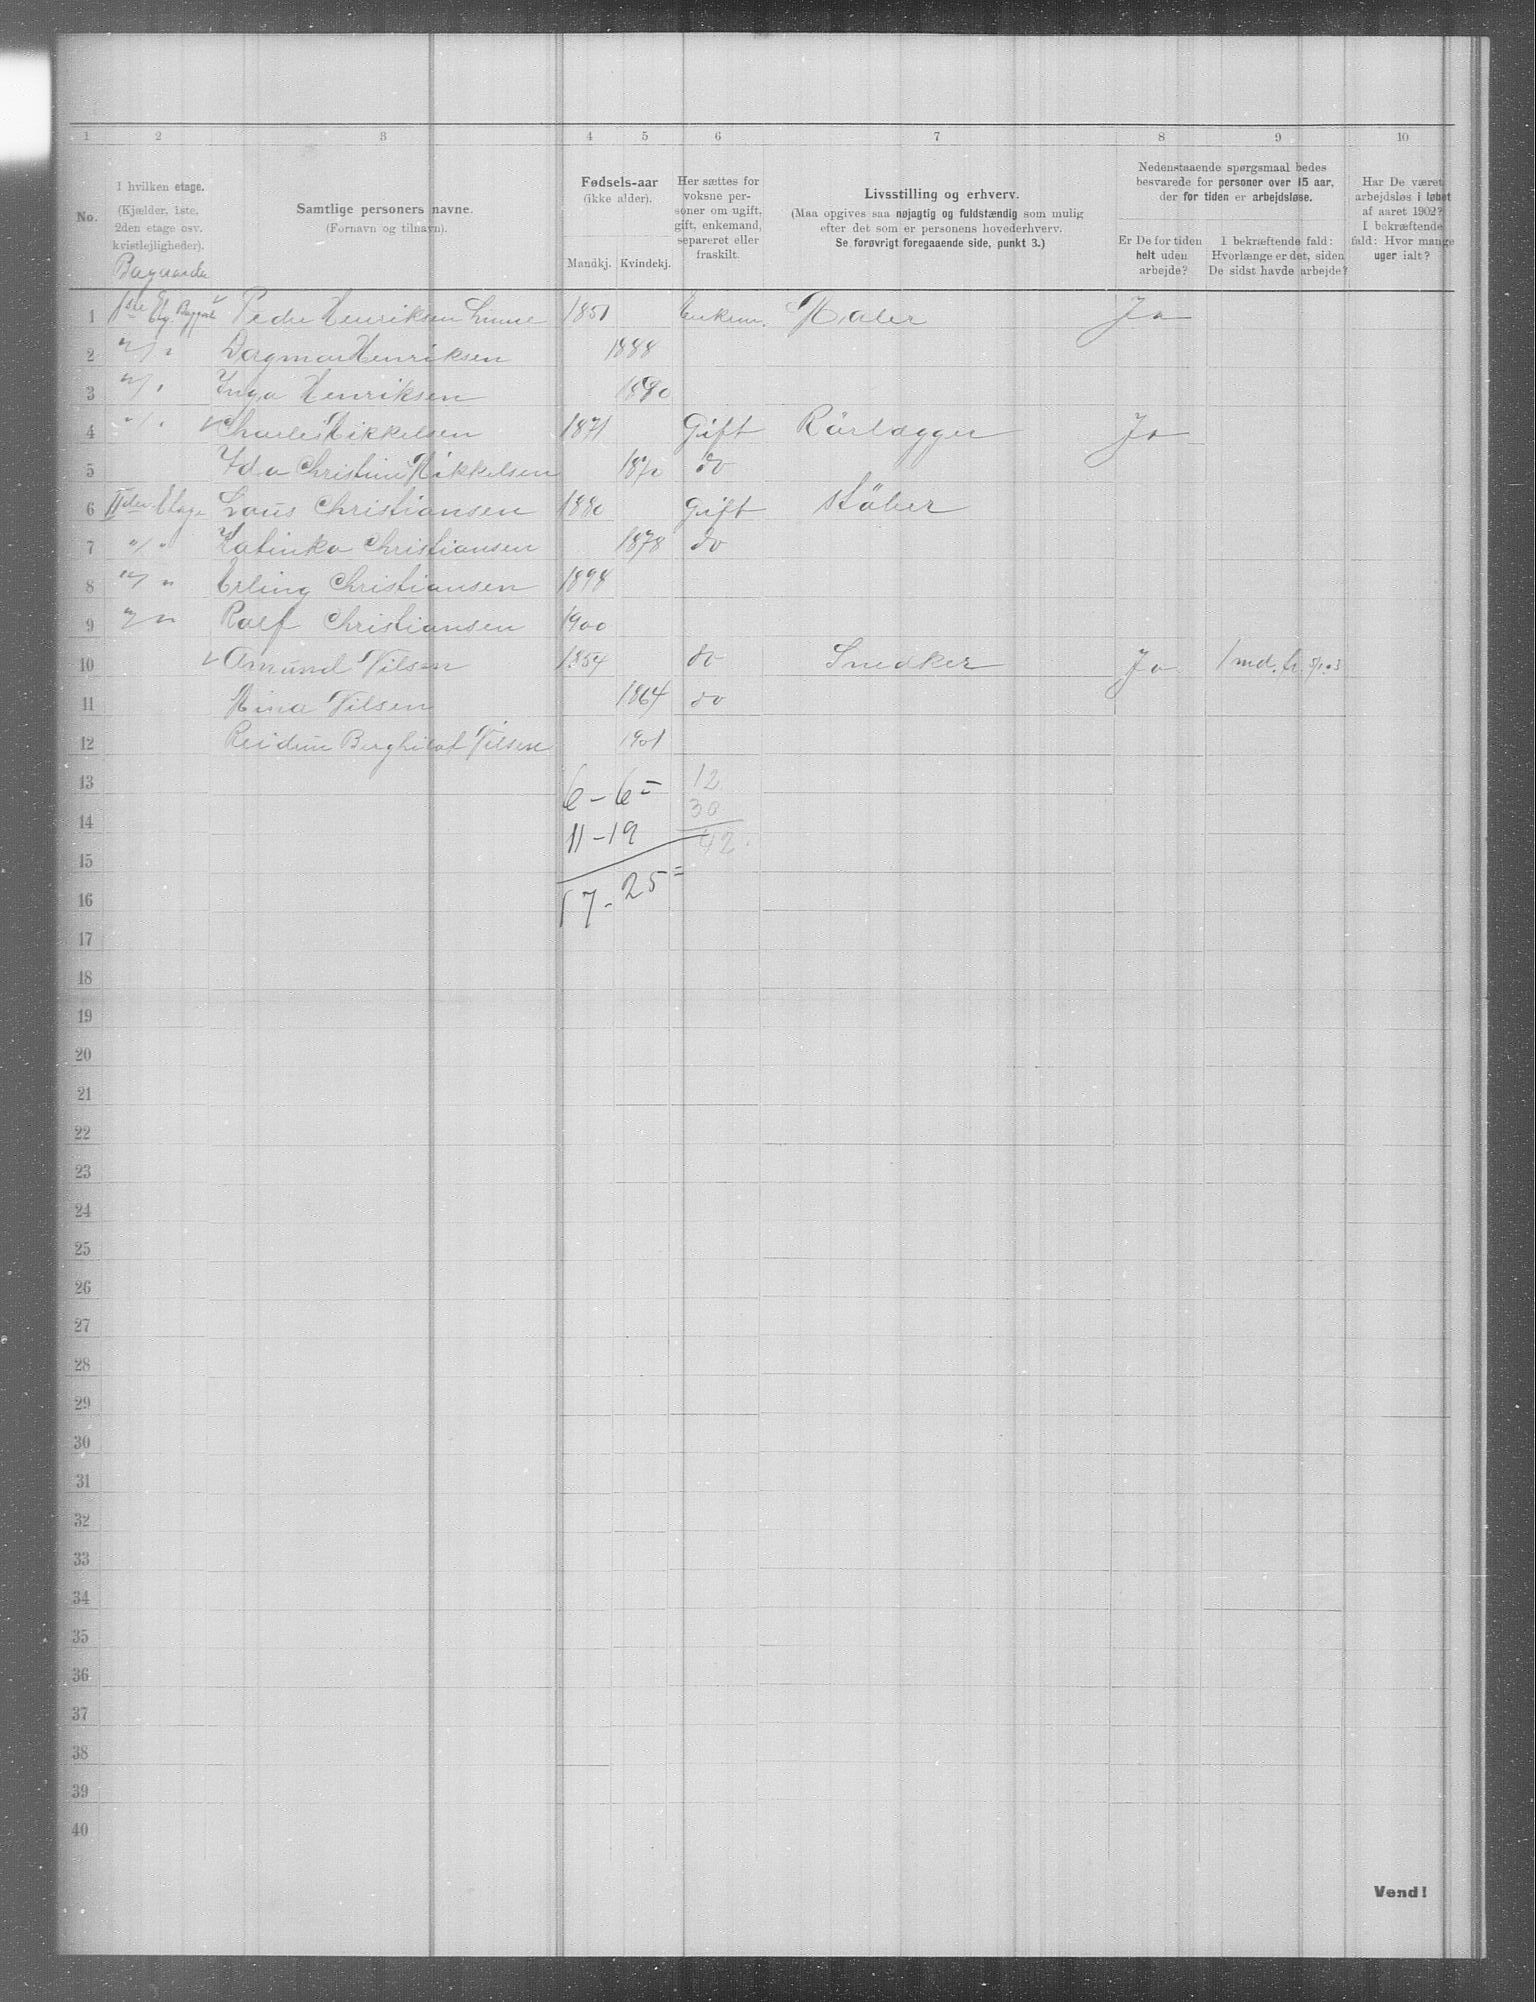 1 2 3 4 5 6 7 8 9 10
No.
I hvilken etage.
(Kjælder, 1ste,
2den etage osv.
kvistlejligheder).
Baggaarden
Samtlige personers navne.
(Fornavn og tilnavn).
Fødsels-aar
(ikke alder).
Mandkj. Kvindekj.
Her sættes for
voksne per-
soner om ugift,
gift, enkemand,
separeret eller
fraskilt.
Livsstilling og erhverv.
(Maa opgives saa nøjagtig og fuldstændig som mulig
efter det som er personens hovederhverv.
Se forøvrigt foregaaende side, punkt 3.)
Nedenstaaende spørgsmaal bedes
besvarede for personer over 15 aar,
der for tiden er arbejdsløse.
Er De for tiden
helt uden
arbejde?
I bekræftende fald:
Hvorlænge er det, siden
De sidst havde arbejde?
Har De været
arbejdsløs i løbet
af aaret 1902?
I bekræftende
fald: Hvor mange
uger ialt?
1 1ste Etg. Peder Henriksen 1851 Enkem. Maler Ja
2 " / " Dagmar Henriksen 1888
3 " / " Inga Henriksen 1890
4 " / " Charles Mikkelsen 1871 Gift Rörlægger Ja
5 Ida Christine Mikkelsen 1870 do
6 IIden Etage Louis Christiansen 1880 Gift Stöber
7 " / " Katinka Christiansen 1878 do
8 " / " Erling Christiansen 1898
9 " / " Ralf Christiansen 1900
10 Amund Nilsen 1854 do Snedker Ja 1 md. fr.
11 Mina Nilsen 1864 do
12 Reidun Berghilot Nilsen 1901
13 6 - 6 = 12
14 30
11 - 19 42
15
16 17 - 25 =
17
18
19
20
21
22
23
24
25
26
27
28
29
30
31
32
33
34
35
36
37
38
39
40
Vend!